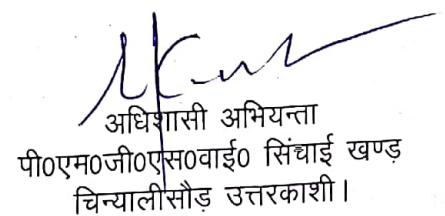 अधिशासी अभियन्ता
पी0एम0जी0एस0वाई0 सिंचाई खण्ड़
चिन्यालीसौड़ उत्तरकाशी।